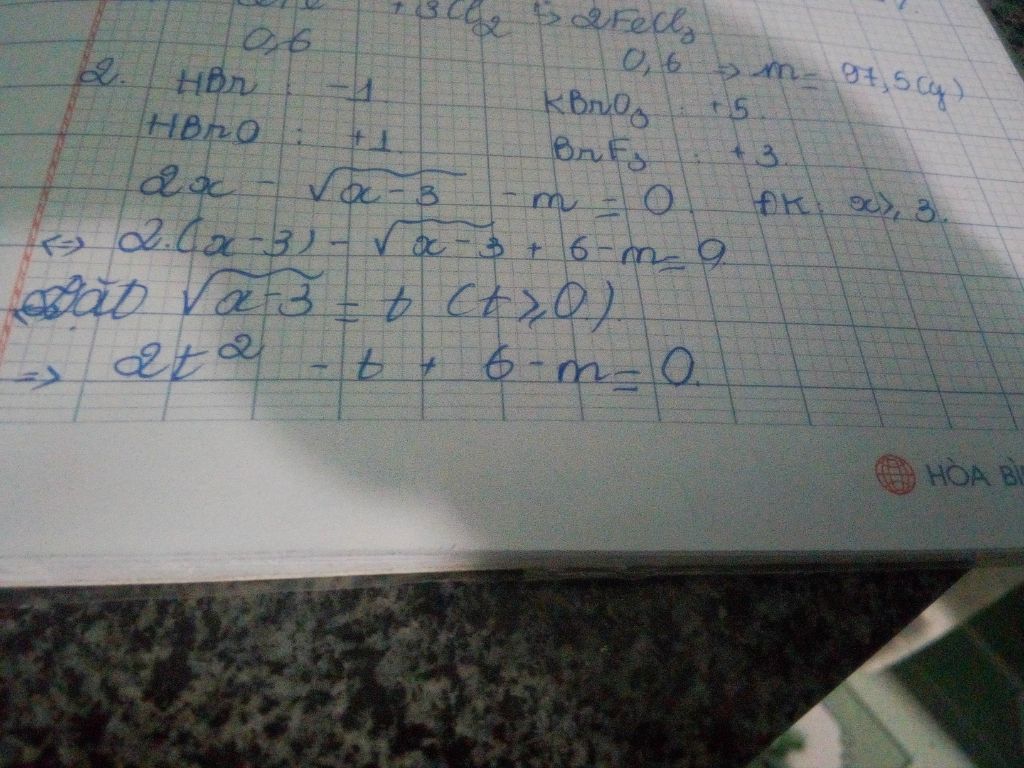 + 3Cl₂ → 2FeCl₃
0,6 0,6 => m = 97,5(g)
2. HBr : -1 KBrO₃ : +5.
HBrO : +1 BrF₃ : +3.
2x - √(x-3) - m = 0 ĐK: x ≥ 3.
<=> 2.(x-3) - √(x-3) + 6 - m = 0
Đặt √(x-3) = t (t ≥ 0).
=> 2t² - t + 6 - m = 0.
HÒA BÌ